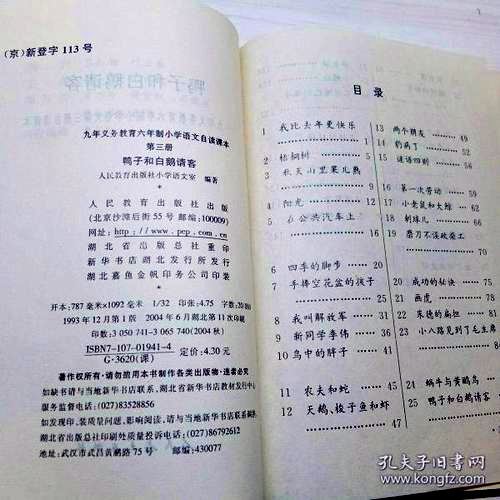 (京)新登字 113 号
鸭子和白鹅请客
九年义务教育六年制小学语文自读课本
第三册
鸭子和白鹅请客
人民教育出版社小学语文室 编著
人民教育出版社出版
(北京沙滩后街 55 号 邮编:100009)
网址:http://www.pep.com.cn
湖北省出版总社重印
新华书店湖北发行所发行
湖北嘉鱼金帆印务公司印装
开本:787 毫米×1092 毫米 1/32 印张:4.75 字数:20
1993 年 12 月第 1 版 2004 年 6 月湖北第 11 次印刷
印数:3 050 741-3 065 740(2004 秋)
ISBN7-107-01941-4
G·3620(课)
定价:4.30 元
著作权所有·请勿擅用本书制作各类出版物·违者必究
如缺书请与当地新华书店联系,湖北省新华书店教材发行部
电话:(027)83528856
如发现印、装质量问题,影响阅读,请与当地新华书店或
湖北省出版总社印刷处质量投诉电话:(027)86792612
地址:武汉市武昌黄鹂路 75 号 邮编:430077
目录
1 我比去年更快乐
2 梧桐树
3 秋天山里果儿熟
4 阳光
5 在公共汽车上
6 四季的脚步 16
7 手捧空花盆的孩子 20
8 我叫解放军 25
9 新同学李伟 30
10 鸟中的胖子 35
11 农夫和蛇 41
12 天鹅、梭子鱼和虾 47
13 两个朋友 49
14 豹病了 52
15 谜语四则 56
16 第一次劳动
17 小老鼠和大鲸 62
18 刺球儿 65
19 磨刀不误砍柴工 70
20 成功的秘诀 75
21 画虎
22 朱德的扁担
23 小八路见到了毛主席
24 蜗牛与黄鹂鸟
25 鸭子和白鹅请客
孔夫子旧书网
www.kongfz.com